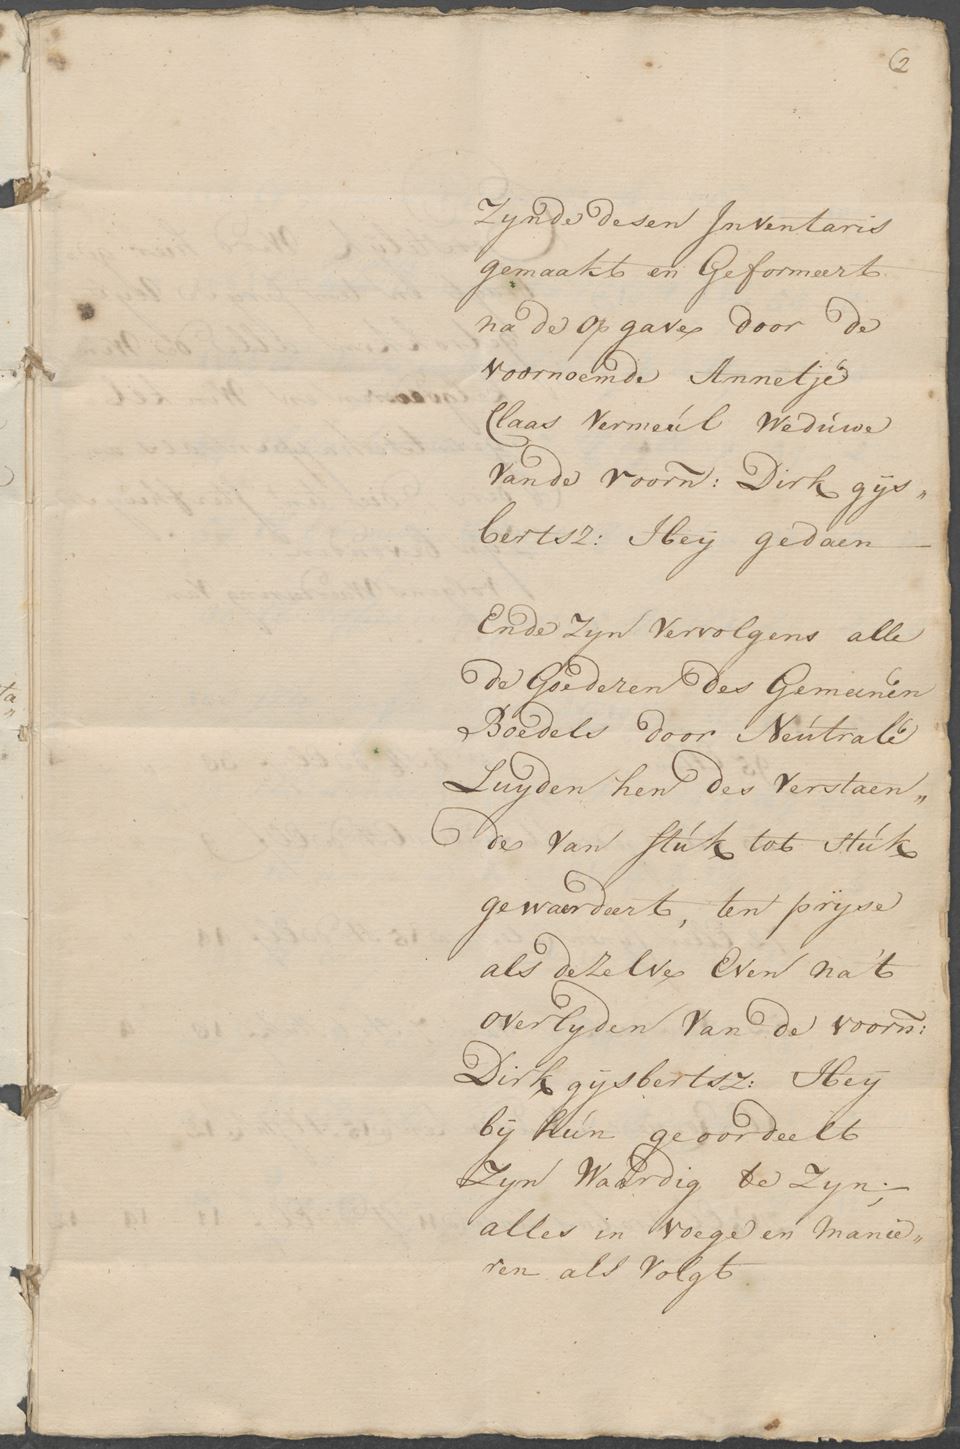 2
Zynde desen Inventaris
gemaakt en Geformeert
na de op gave door de
voornoemde Annetje
Claas Vermeúl Wedúwe
Vande voorn̄: Dirk gijs„
bertsz: Heij gedaen
Ende Zyn Vervolgens alle
de Goederen des Gemeenen
Boedels door Neútrale
Luyden hen des Verstaen„
de van stúk tot stúk
gewaerdeert, ten prijse
als dezelve Even na't
overlyden Van de voorn̄:
Dirk gijsbertsz: Heij
bij hún geoordeelt
Zyn Waardig te Zyn;
alles in voege en Manie„
ren als Volgt